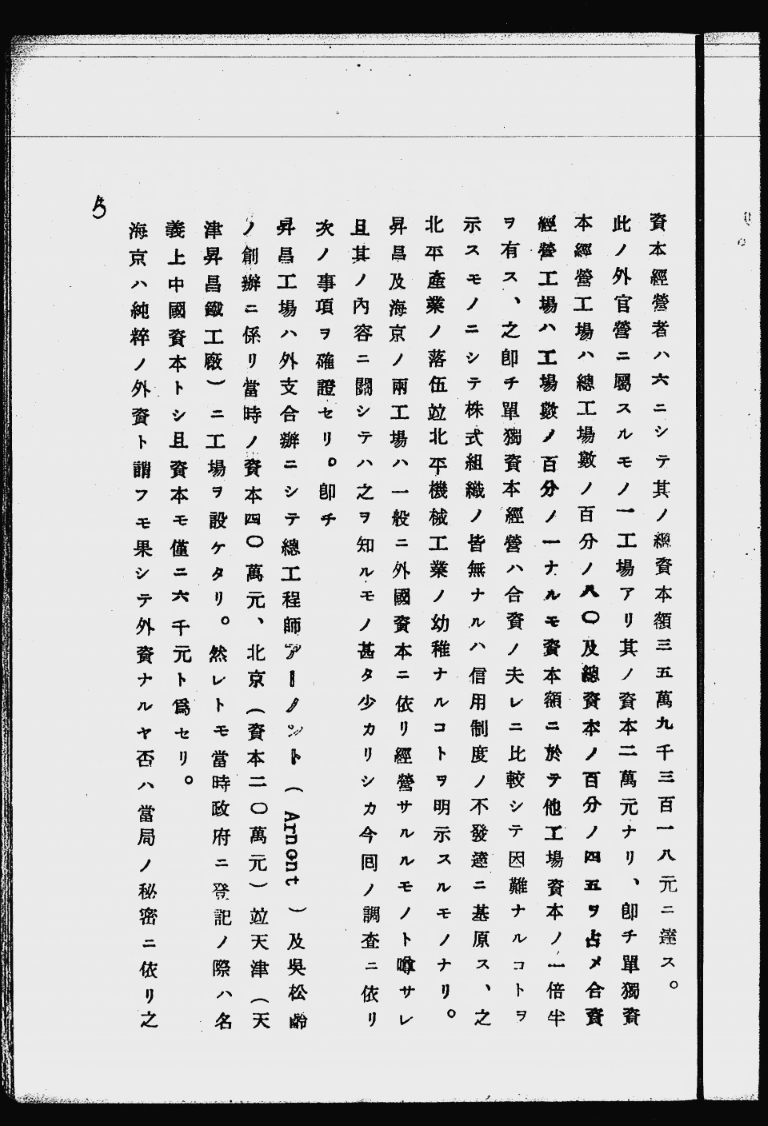 資本經營者ハ六ニシテ其ノ總資本額三五萬九千三百一八元ニ達ス。
此ノ外官營ニ屬スルモノ一工場アリ其ノ資本二萬元ナリ、卽チ單獨資
本經營工場ハ總工場數ノ百分ノ八〇及總資本ノ百分ノ四五ヲ占メ合資
經營工場ハ工場數ノ百分ノ一ナルモ資本額ニ於テ他工場資本ノ一倍半
ヲ有ス、之卽チ單獨資本經營ハ合資ノ夫レニ比較シテ困難ナルコトヲ
示スモノニシテ株式組織ノ皆無ナルハ信用制度ノ不發達ニ基原ス、之
北平產業ノ落伍竝北平機械工業ノ幼稚ナルコトヲ明示スルモノナリ。
昇昌及海京ノ兩工場ハ一般ニ外國資本ニ依リ經營サルルモノト噂サレ
且其ノ內容ニ關シテハ之ヲ知ルモノ甚タ少カリシカ今囘ノ調査ニ依リ
次ノ事項ヲ確證セリ。卽チ
昇昌工場ハ外支合辦ニシテ總工程師アーノント(Arnont)及吳松齡
ノ創辦ニ係リ當時ノ資本四〇萬元、北京(資本二〇萬元)竝天津(天
津昇昌鐵工廠)ニ工場ヲ設ケタリ。然レトモ當時政府ニ登記ノ際ハ名
義上中國資本トシ且資本モ僅ニ六千元ト爲セリ。
海京ハ純粹ノ外資ト謂フモ果シテ外資ナルヤ否ハ當局ノ秘密ニ依リ之